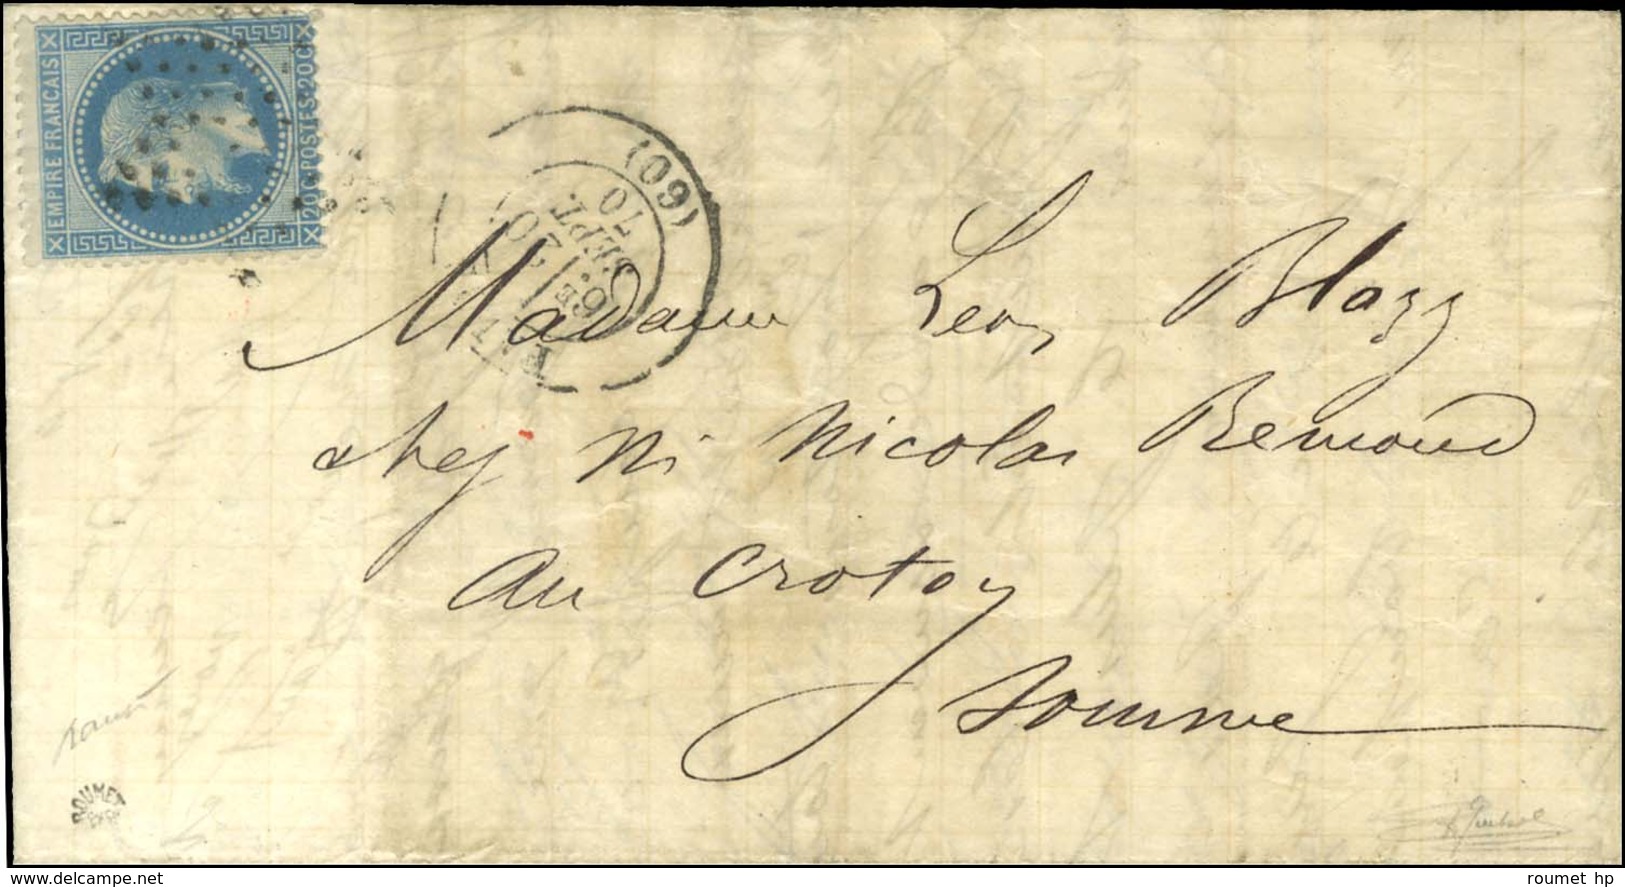 EMPIRE FRANÇAIS
20 C. POSTES. 20 C
(60)
6E
20
SEPT.
70
Madame Leon Blazy
chez Mr Nicolas Remond
au Crotoy
Somme
ROUMET
EXPERT
delcampe.net
roumet hp